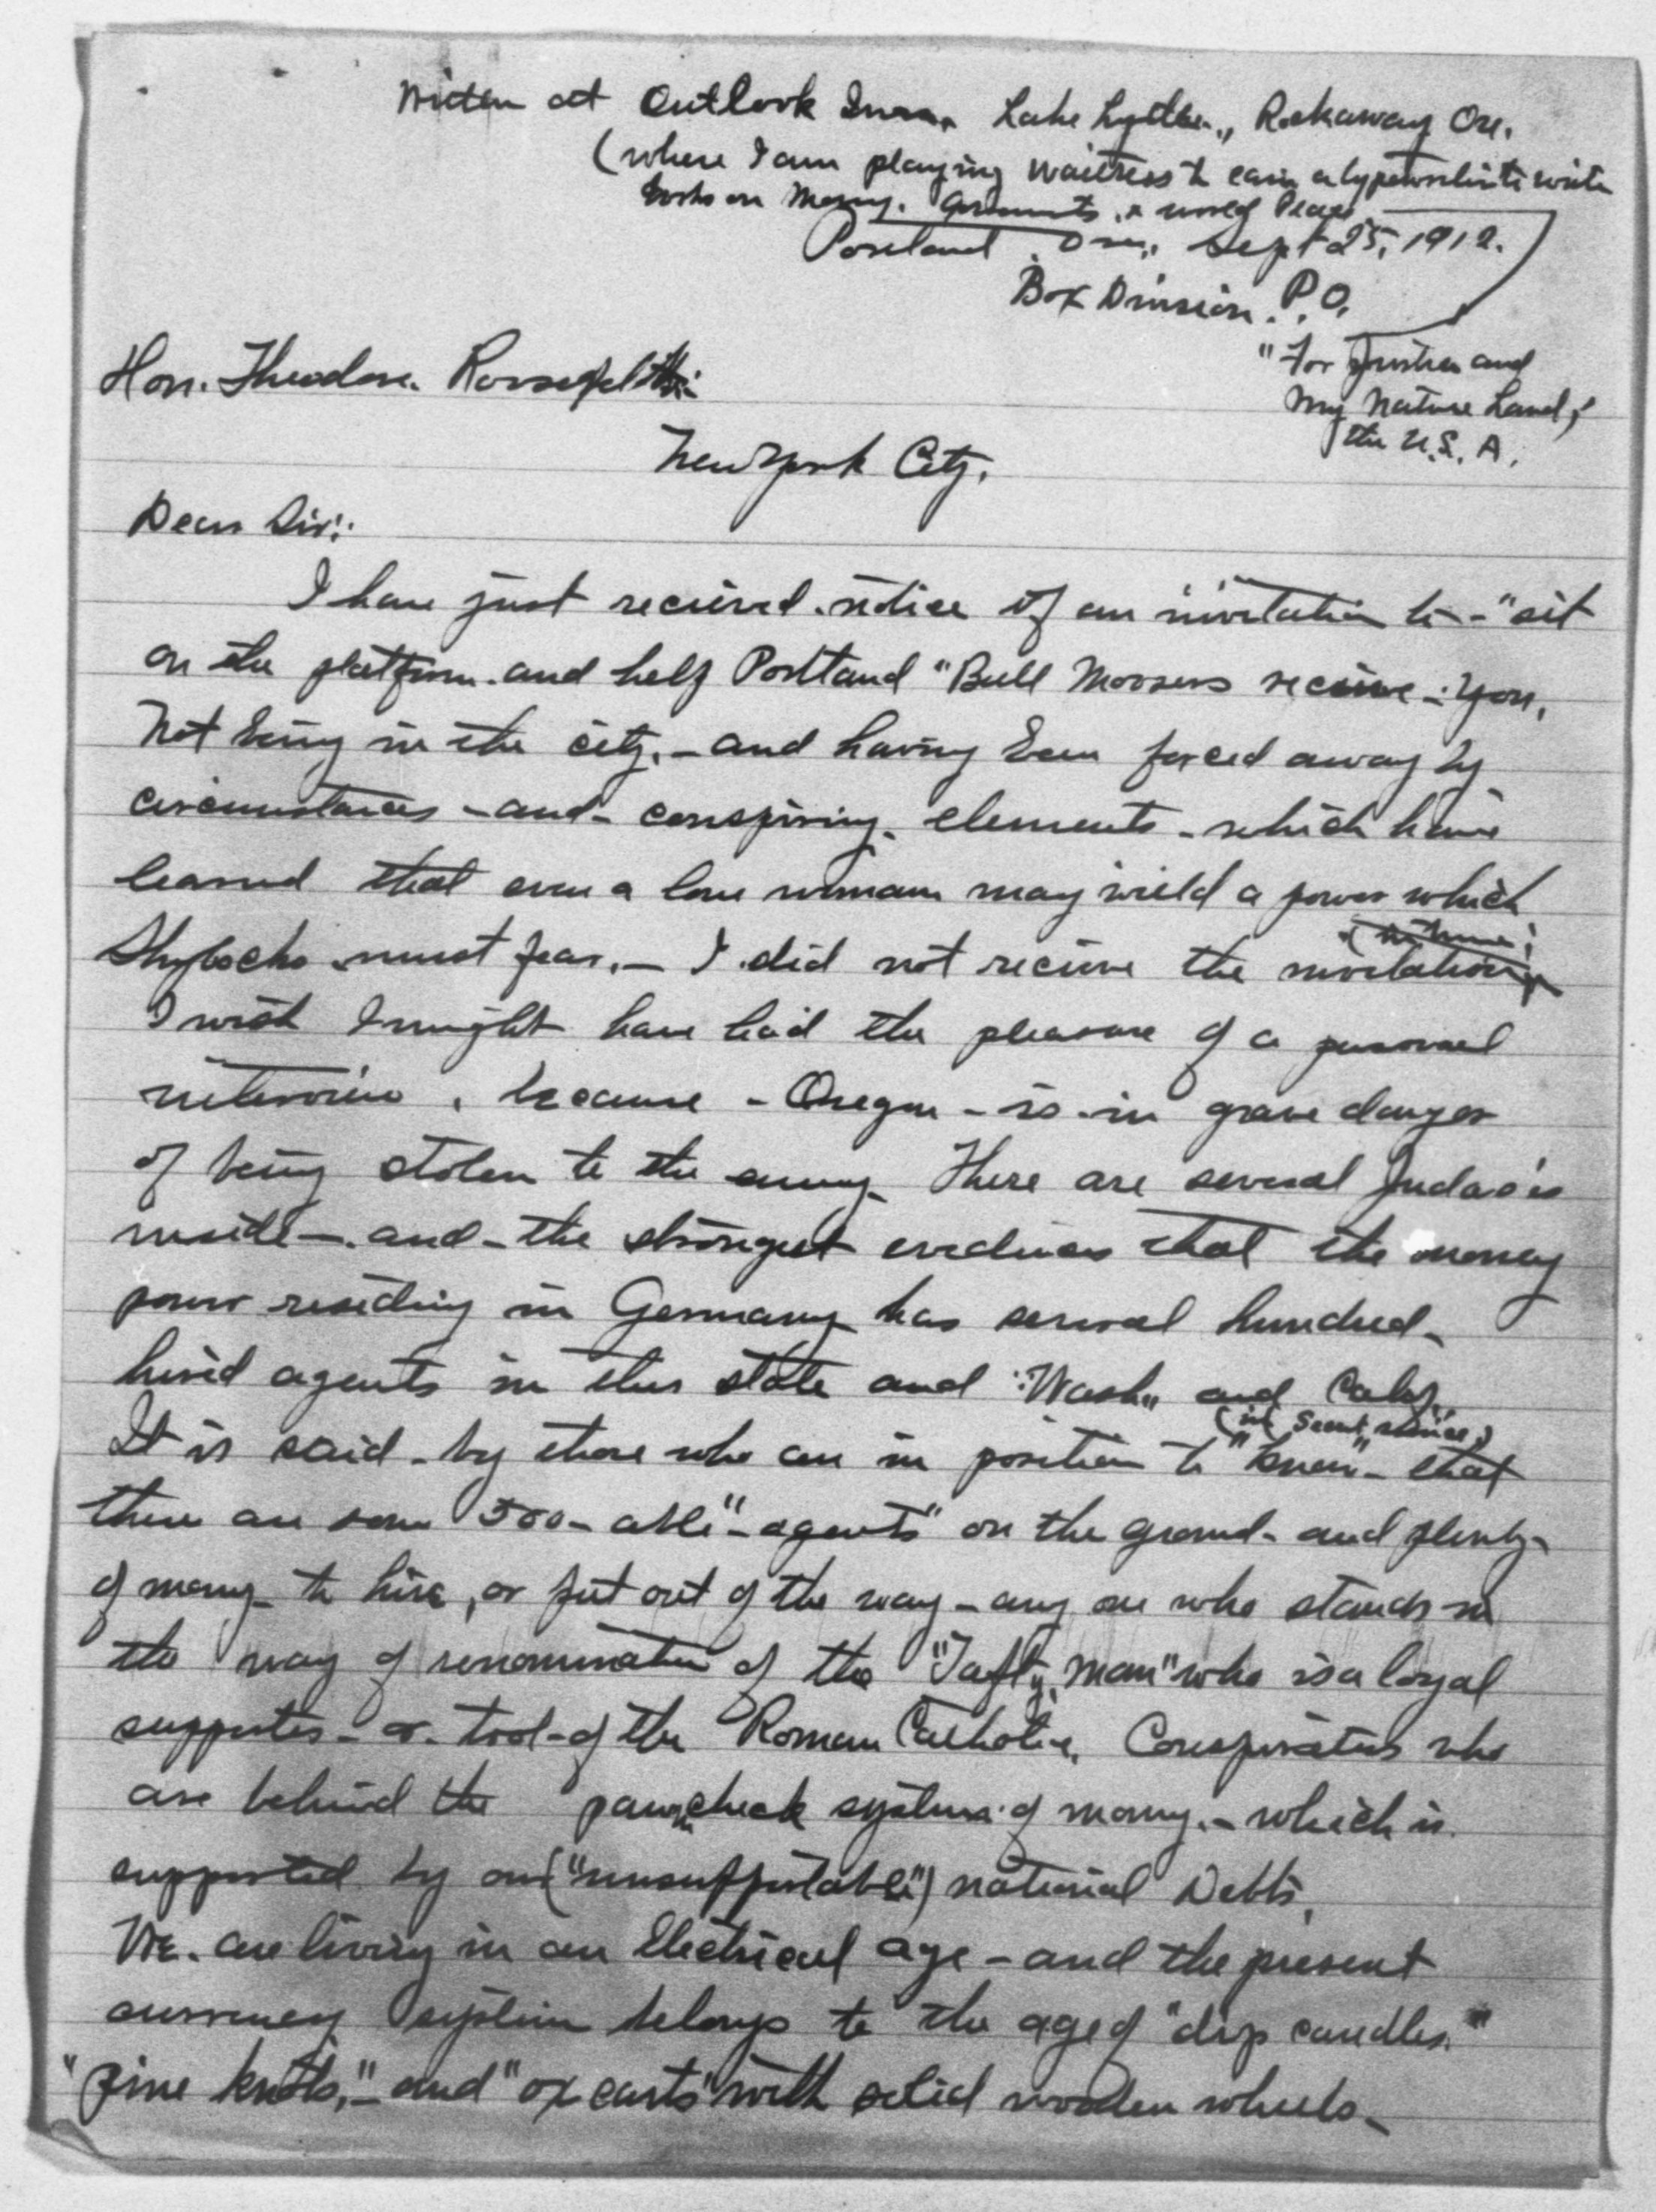 Written at Outlook Inn, Lake Lytle, Rockaway Ore.
(where I am playing waitress to earn a typewriter to write
books on Money. Governments, & world Peace
Portland Ore., Sept 25, 1912.
Box Division. P.O.
"For Justice and
My Native Land,"
the U.S.A.
Hon. Theodore Roosevelt
New York City.
Dear Sir:
I have just recieved notice of an invitation to - "sit
on the platform and help Portland "Bull Moosers recieve - you.
Not being in the city, - and having been forced away by
circumstances - and - conspiring elements - which have
learned that even a lone woman may wield a power which
Shylocks must fear, - I did not recieve the invitation
I wish I might have had the pleasure of a personal
interview, because - Oregon - is in grave danger
of being stolen to the enemy. There are several Judas's
inside - and - the strongest evidences that the money
power residing in Germany has several hundred -
hired agents in this state and Wash. and Calif.
(in Secret service)
It is said - by those who are in position to "know" - that
there are some 500 - able "agents" on the ground - and plenty -
of money to hire, or put out of the way - any one who stands in
the way of renomination of the "Tafty man" who is a loyal
supporter - or tool - of the Roman Catholic Conspirators who
are behind the pawn check system of money. - which is
supported by our ("unsupportable") national Debts.
We are living in an Electrical age - and the present
currency system belongs to the age of "dip candles"
"pine knots," - and "ox carts" with solid wooden wheels -